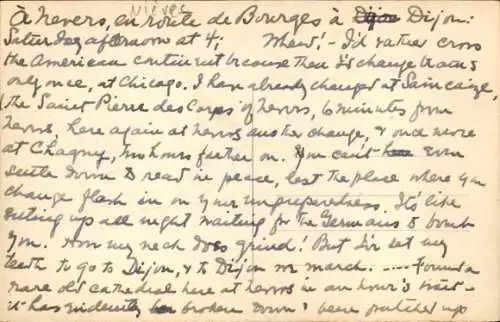 NIEVES
À Nevers, en route de Bourges à Dijon:
Saturday afternoon at 4; Whew! – I'd rather cross
the American continent because then I'd change trains
only once, at Chicago. I have already changed at Saincaize,
(the Saint Pierre des Corps of Nevers, 6 minutes from
Nevers, here again at Nevers another change, & once more
at Chagny, two hours farther on. You can't even
settle down to read in peace, lest the place where you
change flash in on your unpreparedness. It's like
sitting up all night waiting for the Germans to bomb
you. How my neck does grind! But I've set my
teeth to go to Dijon, & to Dijon we march. ---- Found a
rare old cathedral here at Nevers in an hour's wait –
it has evidently broken down & been patched up